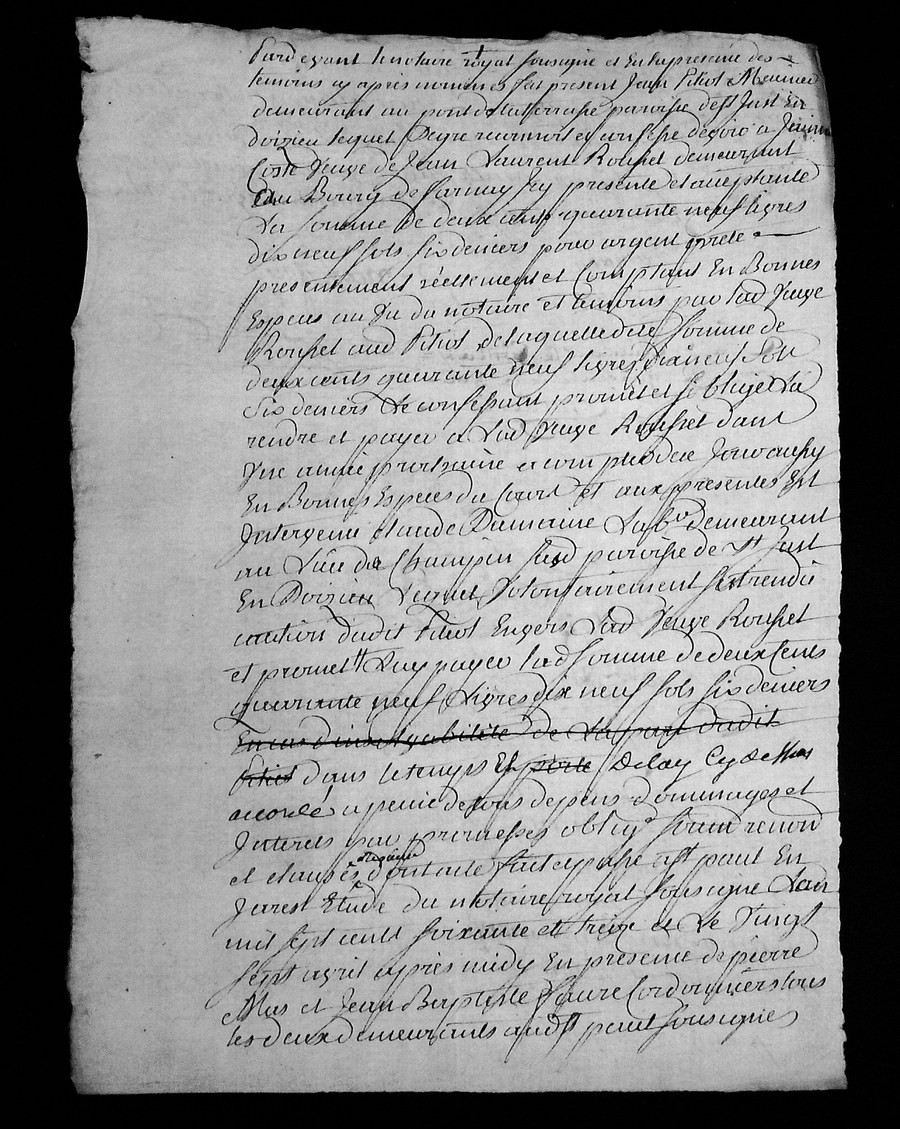 Pardevant le notaire royal soussigné et En la presence des
temoins cy après nommés fut present Jean Pitiot Meunier
demeurant au pont de la terrasse paroisse de St Just En
doizieu lequel De gre reconnoit et confesse devoir a
Coste Veuve de Jean Laurent Rousset demeurant
au Bourg de farnay Icy presente et acceptante
La somme de deux cents quarante neuf livres
dix neuf sols six deniers pour argent prete
presentement réellement et Comptant En Bonnes
Especes au Vu du notaire et temoins par lad Veuve
Rousset aud Pitiot de laquelle dite somme de
deux cents quarante neuf livres dix neuf sols
six deniers Le confessant promet et s'oblige La
rendre et payer a Lad Veuve Rousset dans
Une année prochaine a compter de Jourdhuy
En Bonnes Especes du Cours et aux presentes Est
Intervenu claude Dumaine Labr demeurant
au Lieu de Champin susd paroisse de St Just
En Doizieu Lequel Volontairement s'est rendu
caution dudit Pitiot Envers Lad Veuve Rousset
et promett Luy payer Lad somme de deux Cents
quarante neuf Livres dix neuf sols six deniers
En cas d'insolvabilité de La part dudit
Pitiot dans le temps Et porte Delay Cy dessus
accordé a peine de tous depens dommages et
Interets par promesses oblign soumn renon
et clauses dont acte fait et passé a St paul En
Jarest Etude du notaire royal soussigné L'an
mil sept cent soixante et treize et Le Vingt
sept avril après midy En presence de pierre
Mas et Jean Baptiste faure Cordonniers tous
les deux demeurants aud St paul soussignés